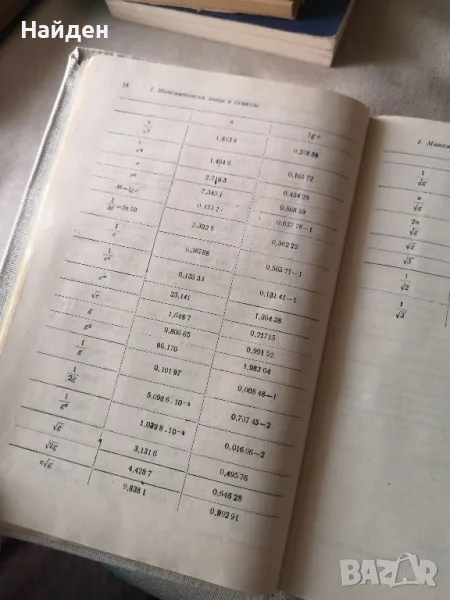 Найден
18 I. Математически знаци и символи
n lg n
1,813 6 0,258 56
1,464 6 0,165 72
e 2,718 3 0,434 29
e² 7,389 1 0,868 59
M=lg e 0,434 2 0,637 78—1
1/M=ln 10 2,302 6 0,362 22
1/e 0,367 88 0,565 71—1
1/e² 0,135 34 0,131 41—1
23,141 1,364 38
√e 1,648 7 0,217 15
g 9,806 65 0,991 52
g² 96,170 1,983 04
1/g 0,101 97 0,008 48—1
1/2g 5,098 6 . 10⁻² 0,707 45—2
1/g² 1,039 8 . 10⁻² 0,016 96—2
√g 3,131 6 0,495 76
√2g 4,428 7 0,646 28
π√g 9,838 1 0,992 91
1/√g
π/√g
2π/√g
√2
√3
1/√2
1/√3
BAZAR